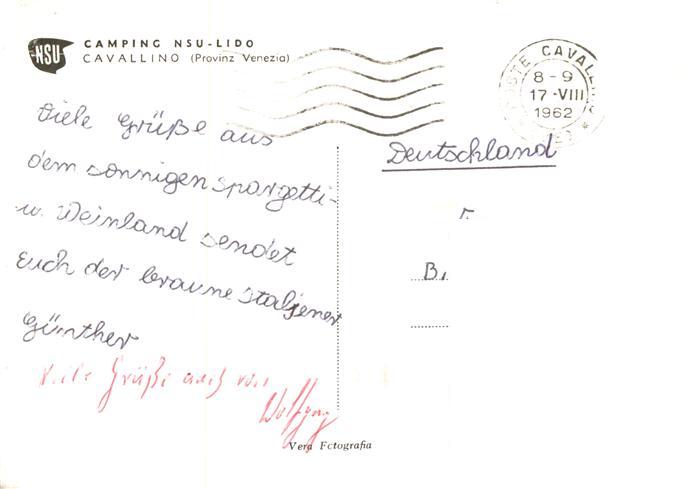 NSU
CAMPING NSU-LIDO
CAVALLINO (Provinz Venezia)
POSTE CAVALLINO
8-9
17·VIII
1962
Viele Grüße aus
dem sonnigen Spargetti-
u. Weinland sendet
Euch der braune Italjener
Günther
Viele Grüße auch von
Wolfgang
Deutschland
r.
B.
Vera Fotografia